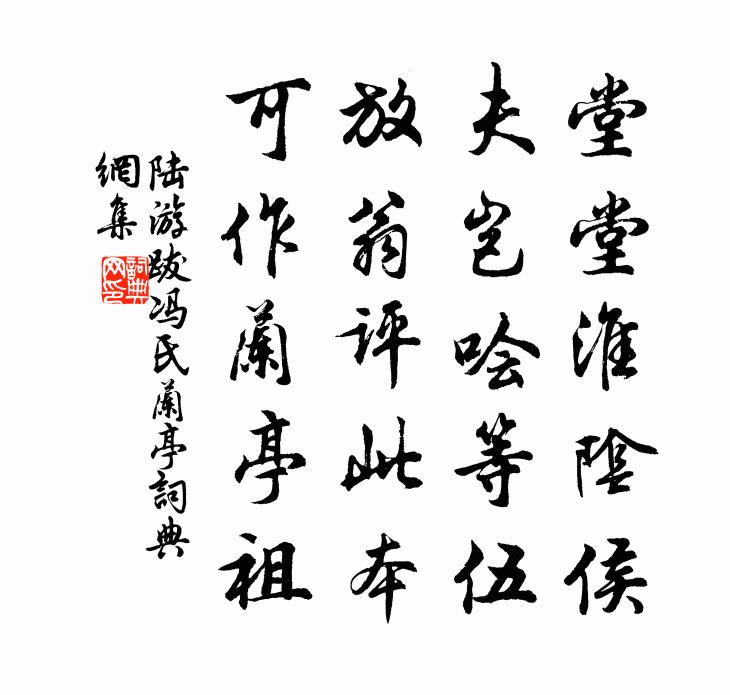 堂堂淮陰侯
夫豈噲等伍
放翁評此本
可作蘭亭祖
陆游跋冯氏蘭亭詞典
網集
詞典
网印